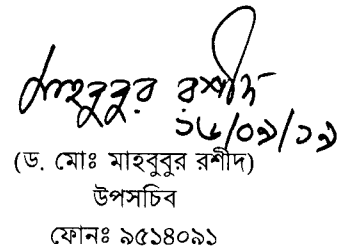 মাহবুবুর রশীদ
১৬/০৯/১৯
(ড. মোঃ মাহবুবুর রশীদ)
উপসচিব
ফোনঃ ৯৫১৪০৯১